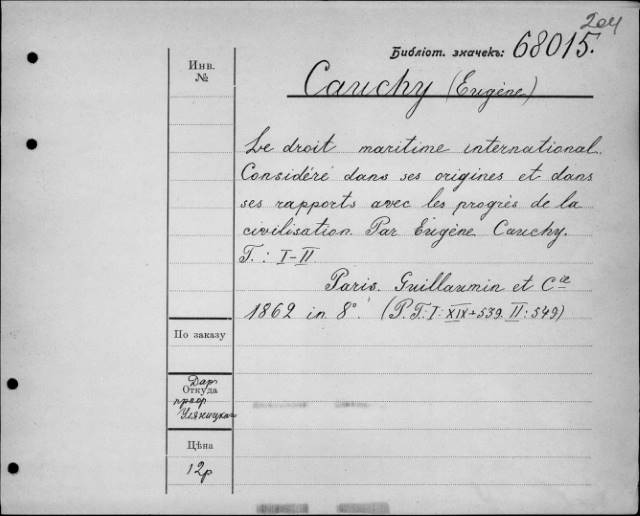 204
Библіот. значекъ: 68015.
Инв.
№
Cauchy (Eugène)
Le droit maritime international.
Considéré dans ses origines et dans
ses rapports avec les progrès de la
civilisation. Par Eugène Cauchy.
T.: I-II
Paris. Guillaumin et Cie
1862 in 8°. (P. T: I: XIX+539. II: 549)
По заказу
Дар
Откуда
проф
Уляницкаго
Цѣна
12р